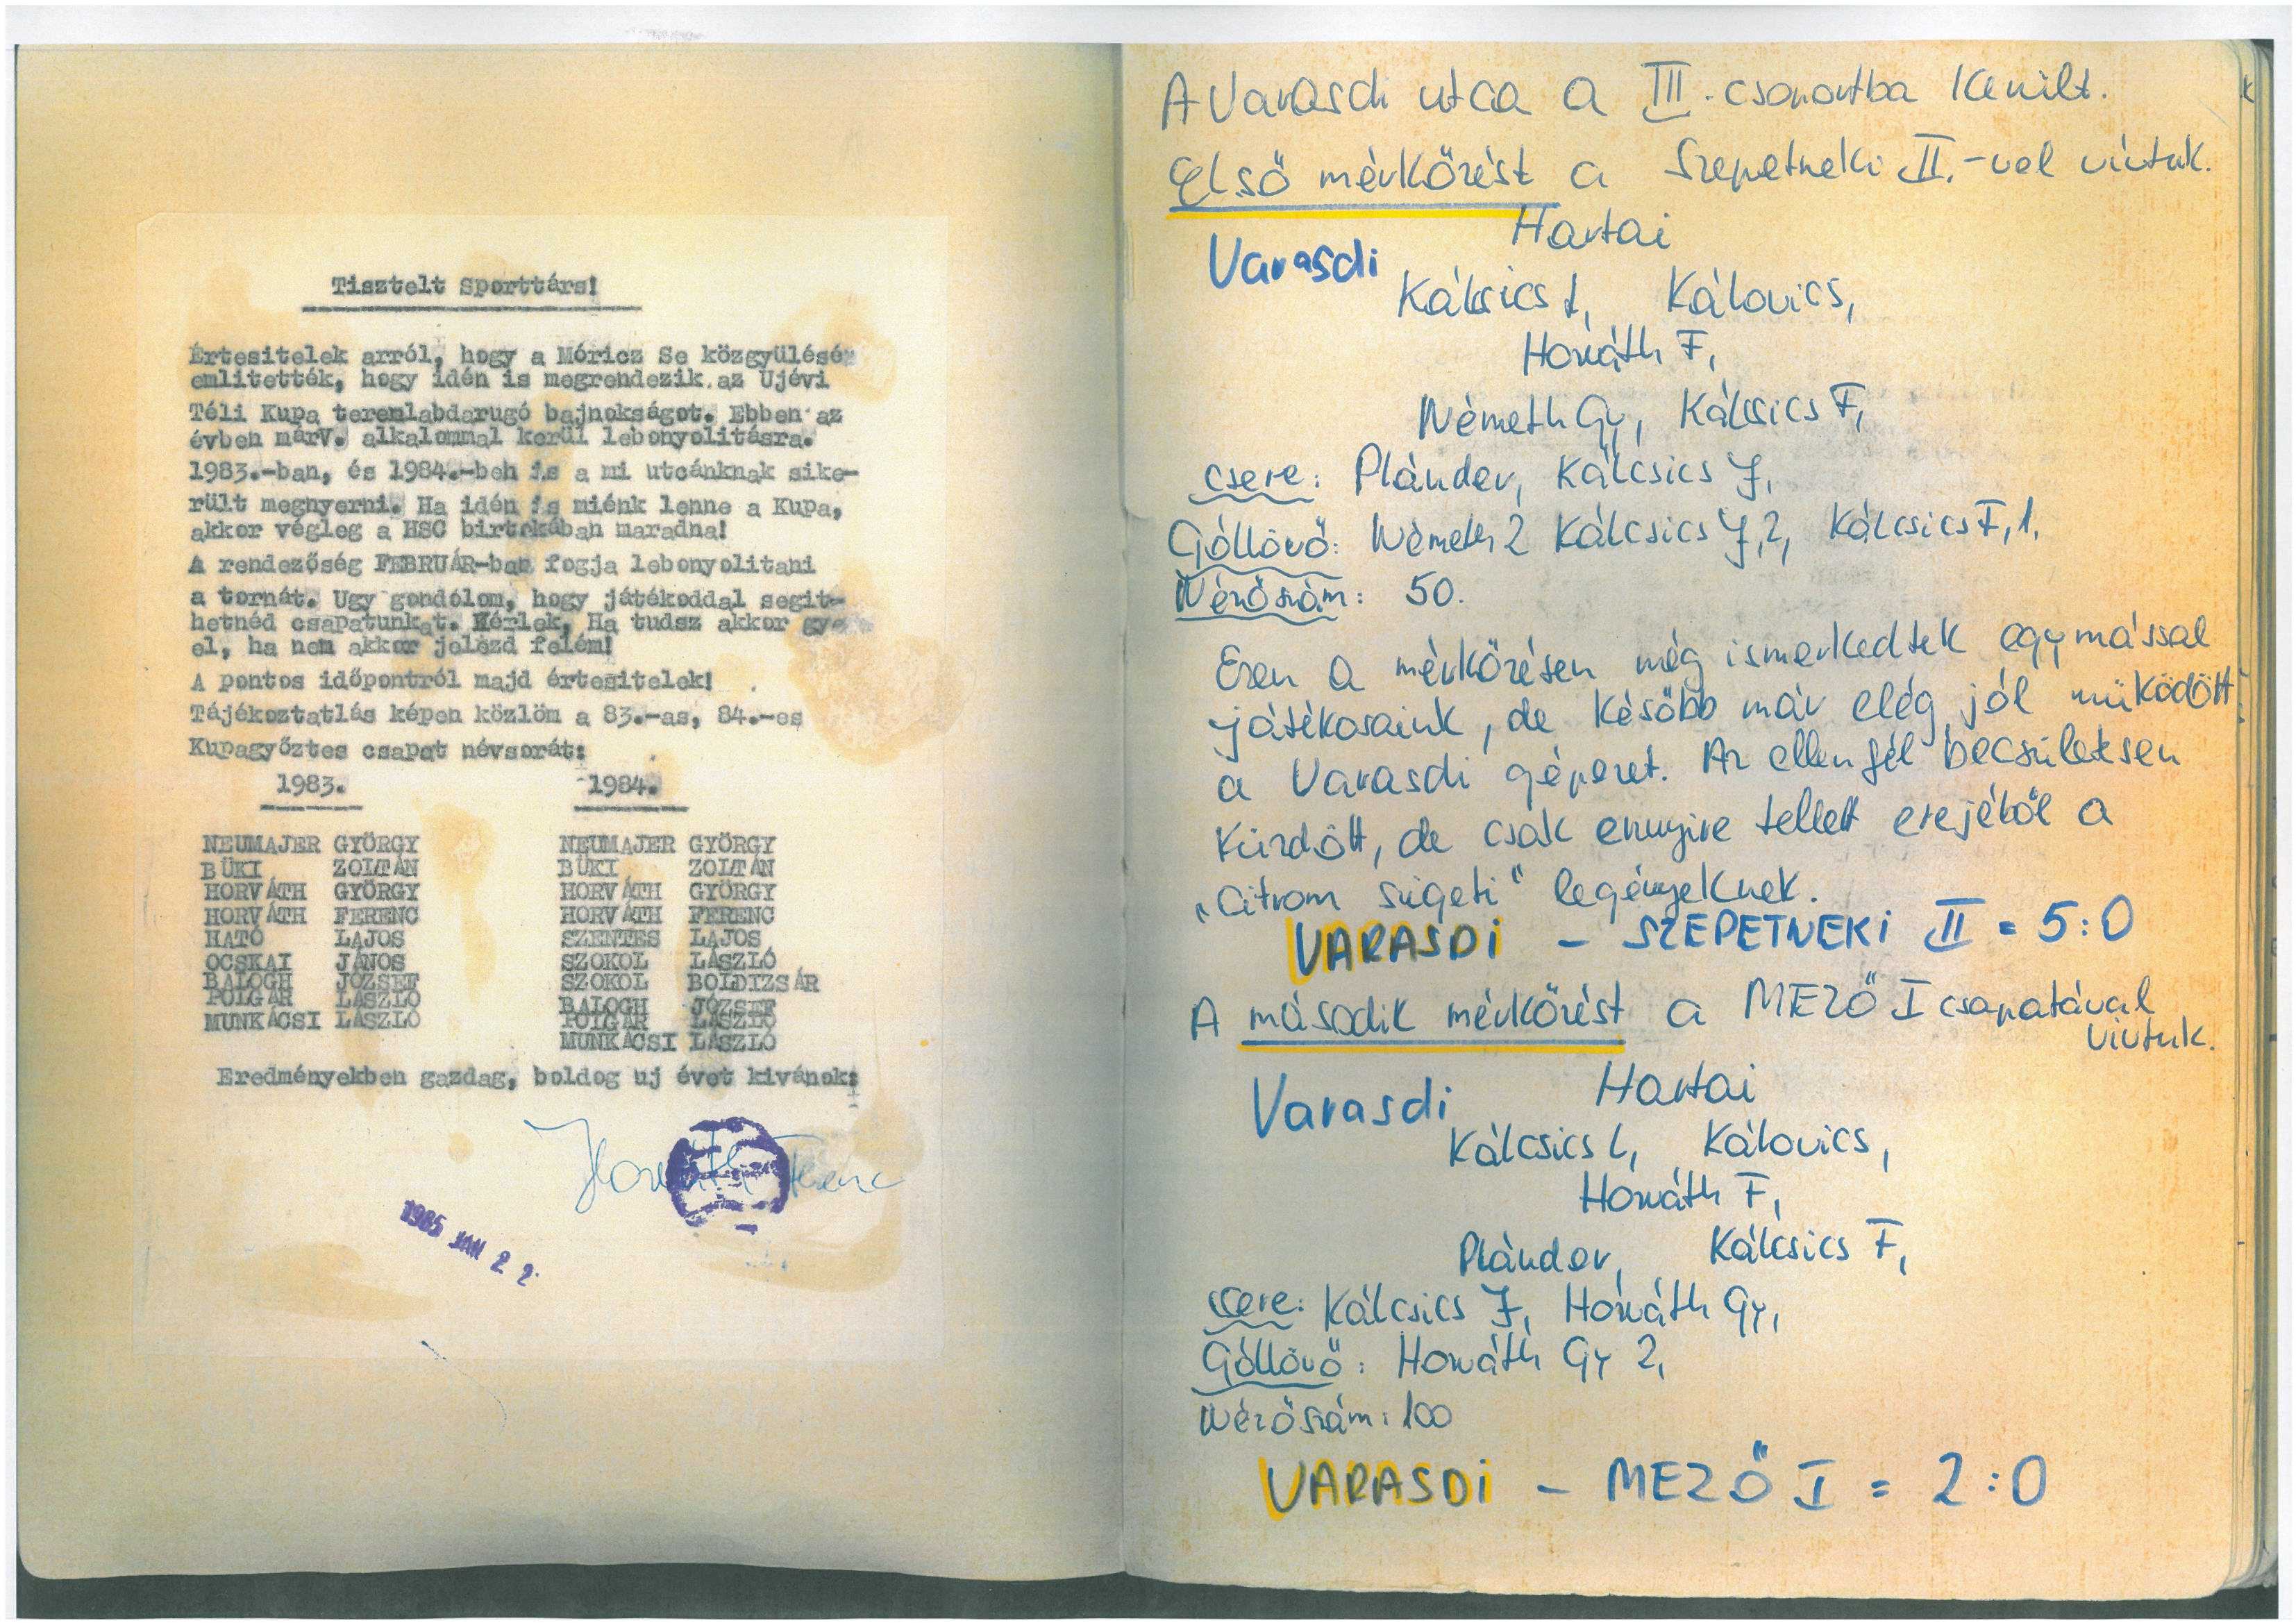 Tisztelt Sporttárs!
Értesitelek arról, hogy a Móricz Se közgyülésé
emlitették, hogy idén is megrendezik az Ujévi
Téli Kupa teremlabdarugó bajnokságot. Ebben az
évben márV. alkalommal kerül lebonyolitásra.
1983.-ban, és 1984.-beh is a mi utcánknak sike-
rült megnyerni. Ha idén is miénk lenne a Kupa,
akkor végleg a HSC birtokában maradna!
A rendezőség FEBRUÁR-ban fogja lebonyolitani
a tornát. Ugy gondolom, hogy játékoddal segit-
hetnéd csapatunkat. Kérlek, Ha tudsz akkor gye
el, ha nem akkor jelezd felém!
A pontos időpontról majd értesitelek!
Tájékoztatlás képen közlöm a 83.-as, 84.-es
Kupagyőztes csapat névsorát:
1983. 1984.
NEUMAJER GYÖRGY NEUMAJER GYÖRGY
BÜKI ZOLTÁN BÜKI ZOLTÁN
HORVÁTH GYÖRGY HORVÁTH GYÖRGY
HORVÁTH FERENC HORVÁTH FERENC
HATÓ LAJOS SZENTES LAJOS
OCSKAI JÁNOS SZOKOL LÁSZLÓ
BALOGH JÓZSEF SZOKOL BOLDIZSÁR
POLGÁR LÁSZLÓ BALOGH JÓZSEF
MUNKÁCSI LÁSZLÓ POLGÁR LÁSZLÓ
MUNKÁCSI LÁSZLÓ
Eredményekben gazdag, boldog uj évet kivánok:
Horváth Ferenc
1985 JAN 2 2
A Varasdi utca a III. csoportba került.
Első mérkőzést a Szepetneki II.-vel vívtuk.
Hartai
Varasdi
Kálcsics L, Kálovics,
Horváth F,
Németh Gy, Kálcsics F,
csere: Plánder, Kálcsics J,
Góllövő: Németh 2 Kálcsics J,2, Kálcsics F,1.
Nézőszám: 50.
Ezen a mérkőzésen még ismerkedtek egymással
játékosaink, de később már elég jól müködött
a Varasdi gépezet. Az ellenfél becsületesen
küzdött, de csak ennyire tellett erejéből a
„Citrom szigeti" legényeknek.
VARASDi - SZEPETNEKi II = 5:0
A második mérkőzést a MEZŐ I csapatával
vivtuk.
Varasdi Hartai
Kálcsics L, Kálovics,
Horváth F,
Plánder, Kálcsics F,
csere: Kálcsics J, Horváth Gy,
Góllövő: Horváth Gy 2,
Nézőszám: 100
VARASDi - MEZŐ I = 2:0